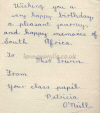 Wishing you a
very happy birthday
a pleasant journey
and happy memories of
South Africa.
To
From
Your class pupil
Patricia
O'Neill